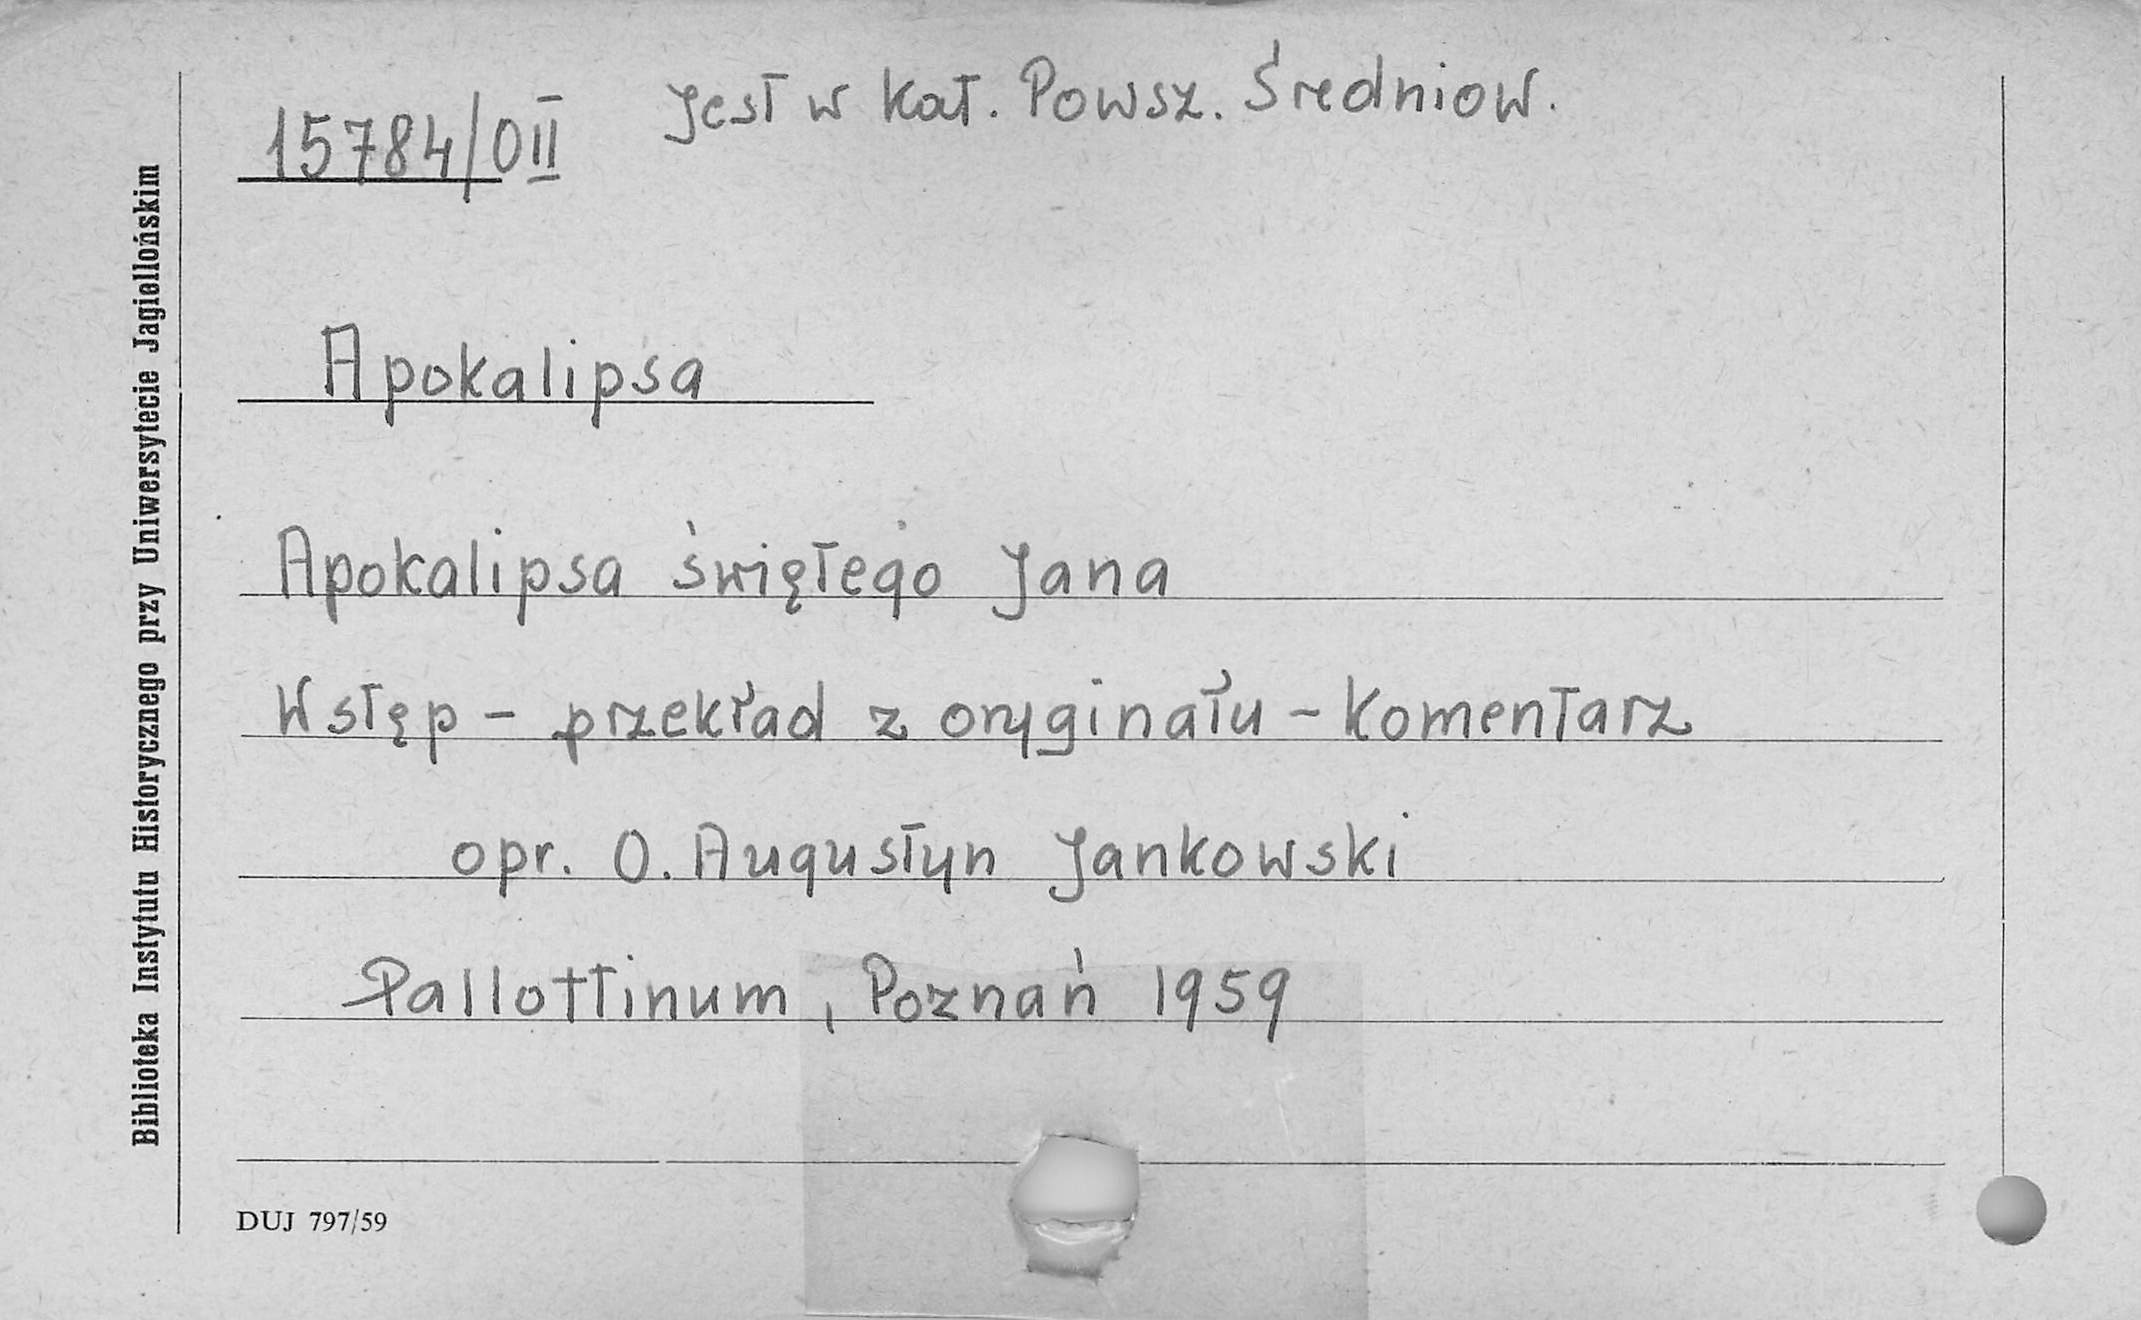 15784/0II Jest w Kat. Powsz. Średniow.
Apokalipsa
Apokalipsa świętego Jana
Wstęp - przekład z oryginału - Komentarz
opr. O. Augustyn Jankowski
Pallottinum, Poznań 1959
DUJ 797/59
Biblioteka Instytutu Historycznego przy Uniwersytecie Jagiellońskim